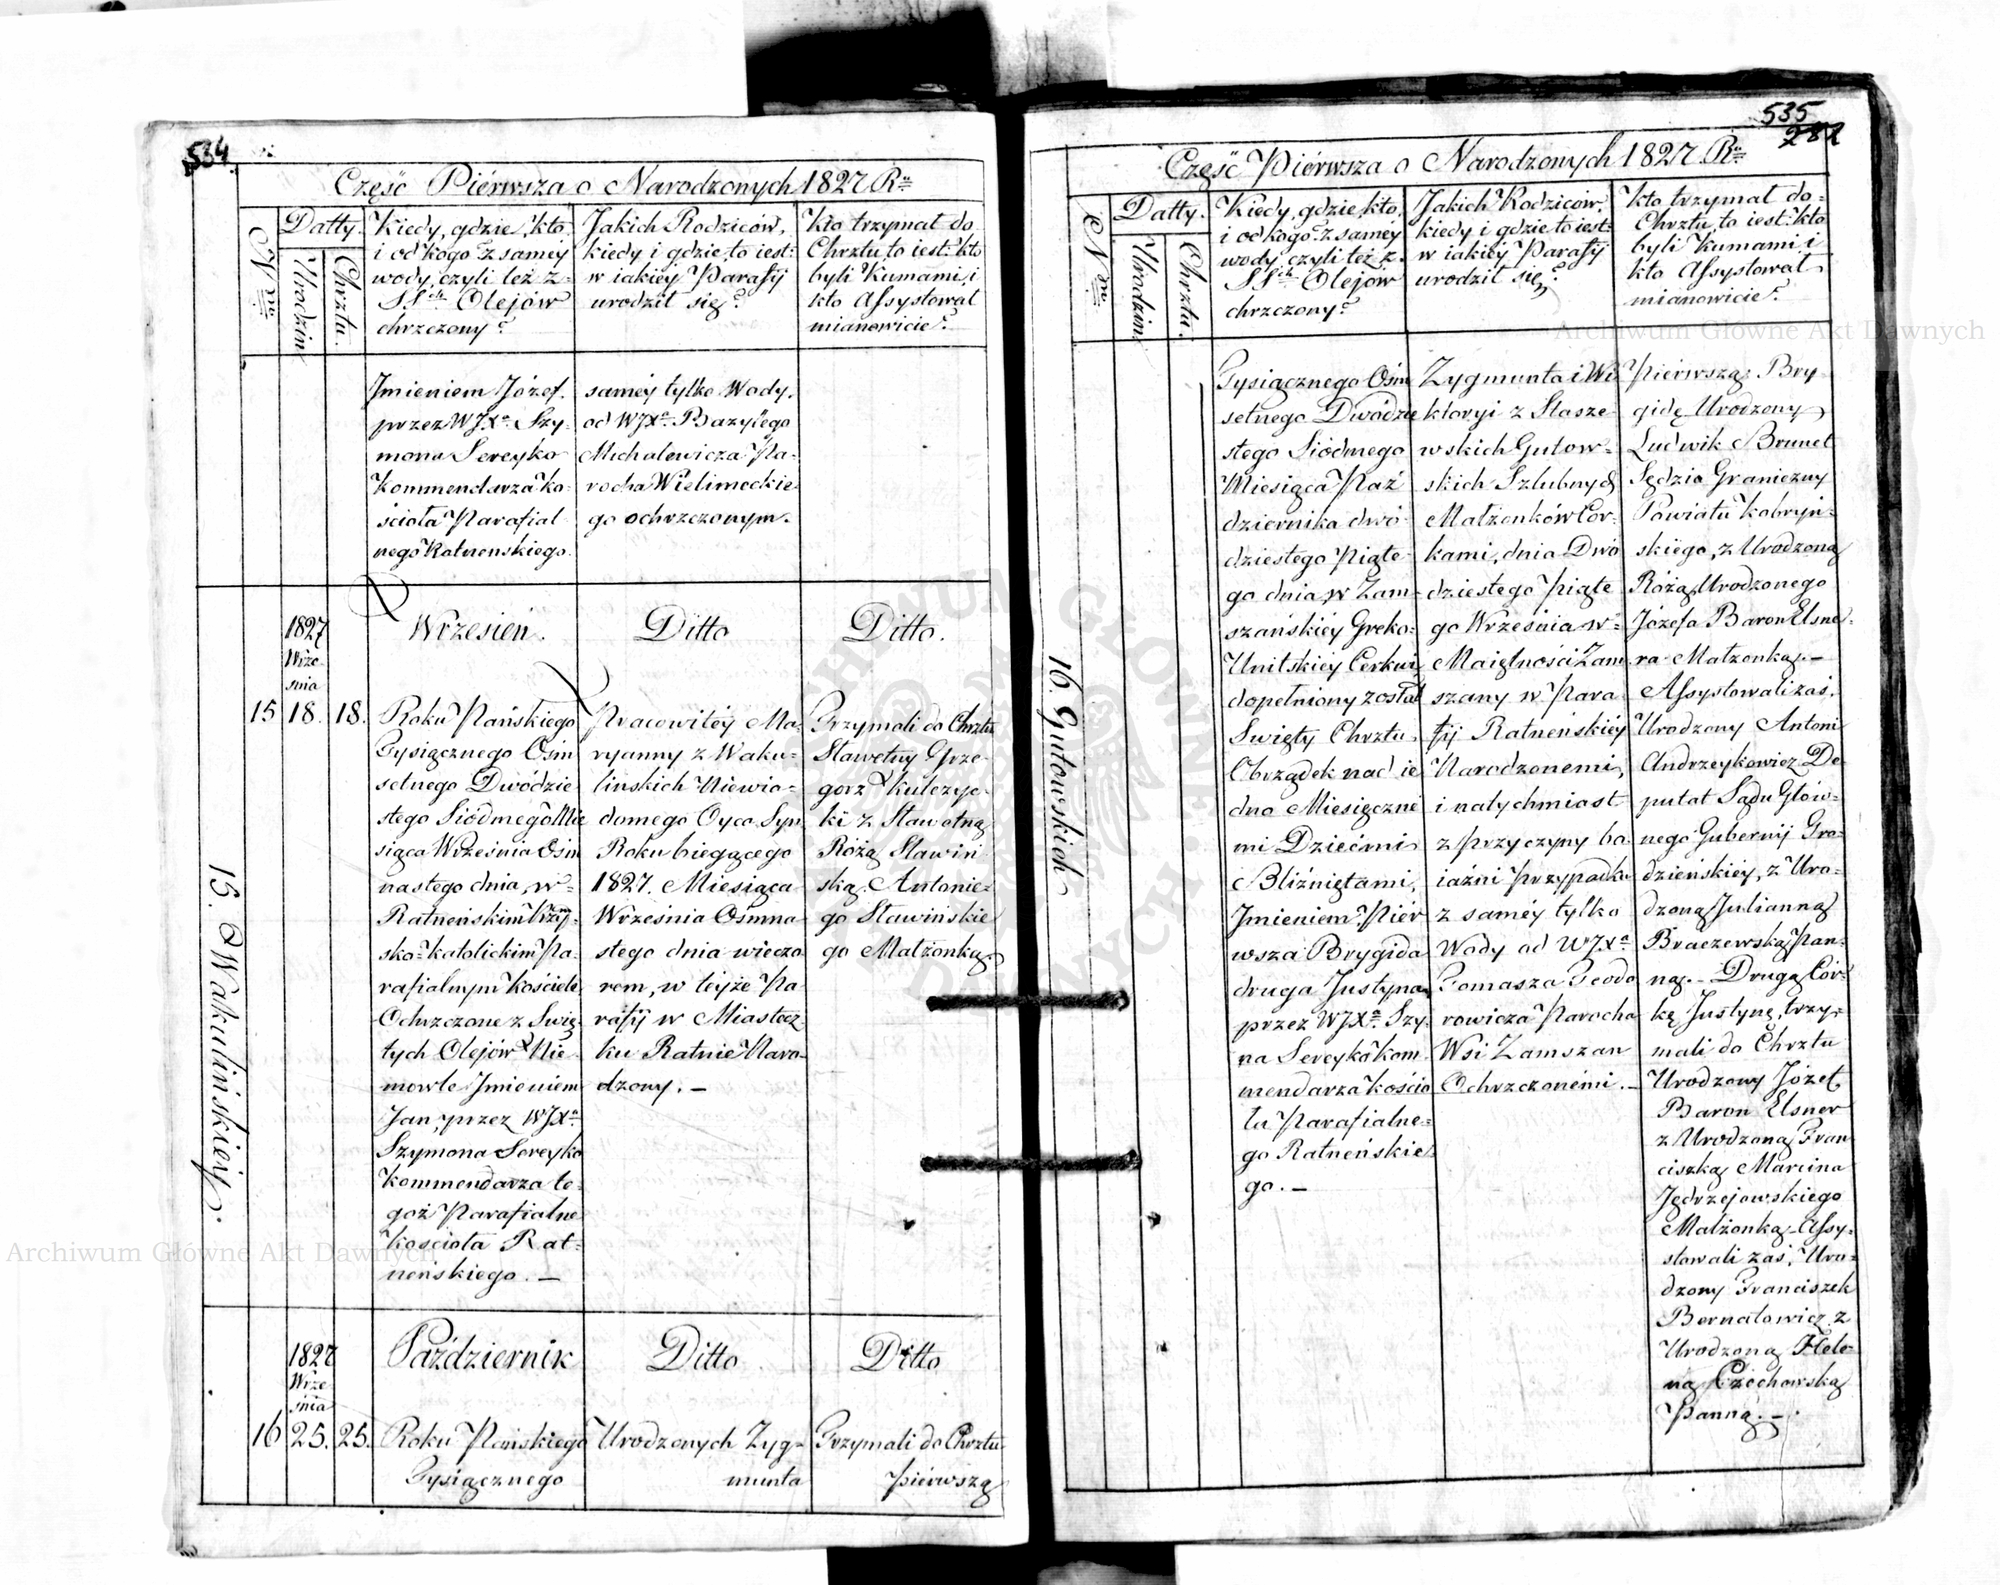 534.
Część Pierwsza o Narodzonych 1827 Rᵘ
Nro
Datty.
Urodzin
Chrztu.
Kiedy, gdzie, kto,
i od kogo z samey
wody, czyli też z
SSch Olejów
chrzczony?
Jakich Rodziców,
kiedy i gdzie, to iest:
w iakiey Parafij
urodził się?
Kto trzymał do
Chrztu, to iest: kto
byli Kumami, i
kto Assystował
mianowicie?
Jmieniem Józef.
przez WJXa Szy-
mona Sereyko
Kommendarza Ko-
ścioła Parafial-
nego Ratnenskiego.
saméy tylko Wody,
od WJXa Bazylego
Michalewicza Pa-
rocha Wielimeckie-
go ochrzczonym.
1827
Wrze-
śnia
15
18.
18.
Wrzesień.
Ditto
Ditto.
Roku Pańskiego
Tysiącznego Ośm
setnego Dwódzie
stego Siódmego Mie
siąca Września Ośm
nastego dnia, w=
Ratneńskim Rzym-
sko=katolickim Pa-
rafialnym Kościele
Ochrzczone z Świę-
tych Olejów Nie-
mowle Jmieniem
Jan, przez WJXa
Szymona Sereyko
Kommendarza te-
goż Parafialne
Kościoła Rat-
neńskiego. —
Pracowitéy Ma-
ryanny z Waku-
linskich Niewia-
domego Oyca Syn,
Roku biegącego
1827. Miesiąca
Września Ośmna
stego dnia wieczo
rem, w teyże Pa
rafij w Miastecz-
ku Ratnie Naro-
dzony. —
Trzymali do Chrztu
Sławetny Grze-
gorz Kulczyc-
ki z Sławetną
Różą Sławiń
ską. Antonie-
go Sławińskie
go Małżonką.
15. Wakulińskiéy.
1827
Wrze-
śnia
16
25.
25.
Październik
Ditto
Ditto
Roku Pańskiego
Tysiącznego
Urodzonych Zyg-
munta
Trzymali do Chrztu
piérwszą
535
282
Część Piérwsza o Narodzonych 1827. Rᵘ
Nro
Datty.
Urodzin
Chrztu.
Kiedy, gdzie, kto,
i od kogo z samey
wody, czyli też z
SSch Olejów
chrzczony?
Jakich Rodziców,
kiedy i gdzie, to iest:
w iakiey Parafij
urodził się?
Kto trzymał do-
Chrztu, to iest: kto
byli Kumami i
kto Assystował
mianowicie?
Tysiącznego Ośm
setnego Dwódzie
stego Siódmego
Miesiąca Paź
dziernika dwó-
dziestego Piąte-
go dnia, w Zam-
szańskiéy Greko-
Unitskiéy Cerkwi,
dopełniony został
Swięty Chrztu
Obrządek nad ie
dno Miesięczné
mi Dziećmi
Bliźniętami,
Jmieniem Piér
wsza Brygida
druga Justyna
przez WJXa Szy-
na Sereyko kom
mendarza Kościo
ła Parafialne-
go Ratneńskie
go. —
Zygmunta i Wi
ktoryi z Stasze
wskich Gutow-
skich Szlubnych
Małżonków Cor-
kami, dnia Dwó
dziestego Piąte
go Września w-
Maiętności Zam
szany w Para
fij Ratneńskiéy
Narodzonemi,
i natychmiast
z przyczyny bo-
iaźni przypadku
z saméy tylko
Wody od WJXa
Tomasza Teodo
rowicza Parocha
Wsi Zamszan
Ochrzczonémi. —
Piérwszą Bry-
gidę Urodzony
Ludwik Brunet
Sędzia Graniczny
Powiatu Kobryń-
skiego, z Urodzoną
Różą, Urodzonego
Józefa Baron Elsne-
ra Małżonką. —
Assystowali zaś,
Urodzony Antoni
Andrzeykowicz De-
putat Sądu Głów-
nego Gubernij Gro-
dzieńskiéy, z Uro-
dzoną Julianną
Braczewską Pan-
ną. — Drugą Cór-
kę Justynę, trzy-
mali do Chrztu
Urodzony Józef
Baron Elsner
z Urodzoną Fran
ciszką Marcina
Jędrzejowskiego
Małżonką. Assy-
stowali zaś, Uro-
dzony Franciszek
Bernatowicz z
Urodzoną Hele-
ną Czochowską
Panną. —
16. Gutowskich
Archiwum Główne Akt Dawnych
Archiwum Główne Akt Dawnych